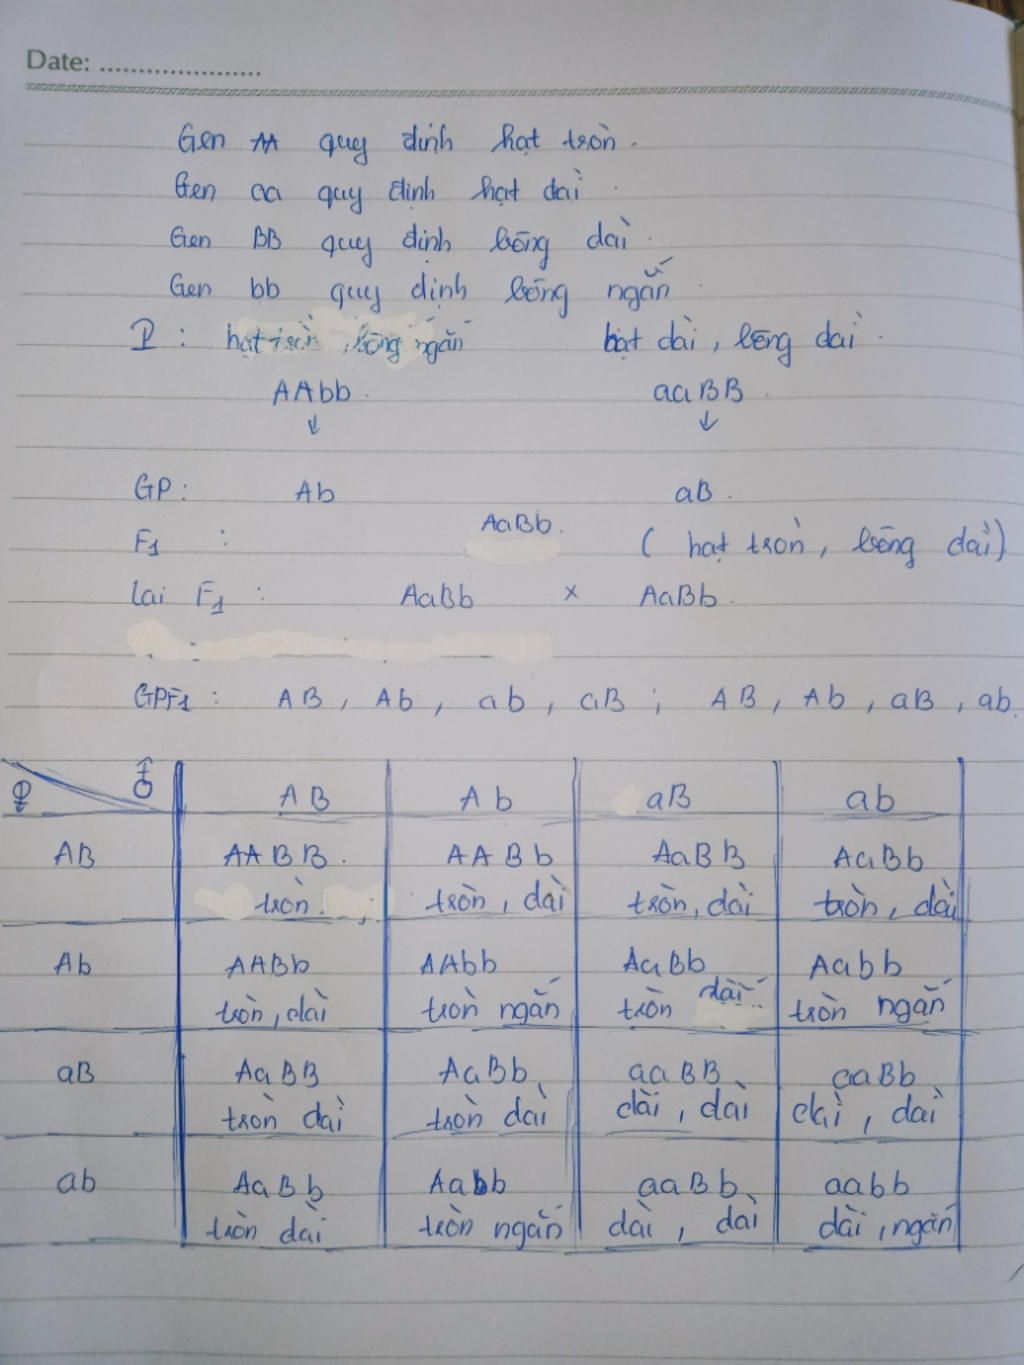 Date: .....................
Gen AA quy định hạt tròn.
Gen aa quy định hạt dài.
Gen BB quy định lông dài.
Gen bb quy định lông ngắn
P : hạt tròn, lông ngắn hạt dài, lông dài.
AAbb. aaBB.
↓ ↓
GP: Ab aB.
AaBb.
F1 : ( hạt tròn, lông dài)
lai F1 : AaBb × AaBb.
GPF1 : AB, Ab, ab, aB; AB, Ab, aB, ab.
♀ ♂ AB Ab aB ab
AB AABB. AABb AaBB AaBb
tròn. tròn, dài tròn, dài tròn, dài
Ab AABb AAbb AaBb Aabb
tròn, dài tròn ngắn tròn dài tròn ngắn
aB AaBB AaBb aaBB aaBb
tròn dài tròn dài dài, dài dài, dài
ab AaBb Aabb aaBb aabb
tròn dài tròn ngắn dài, dài dài, ngắn